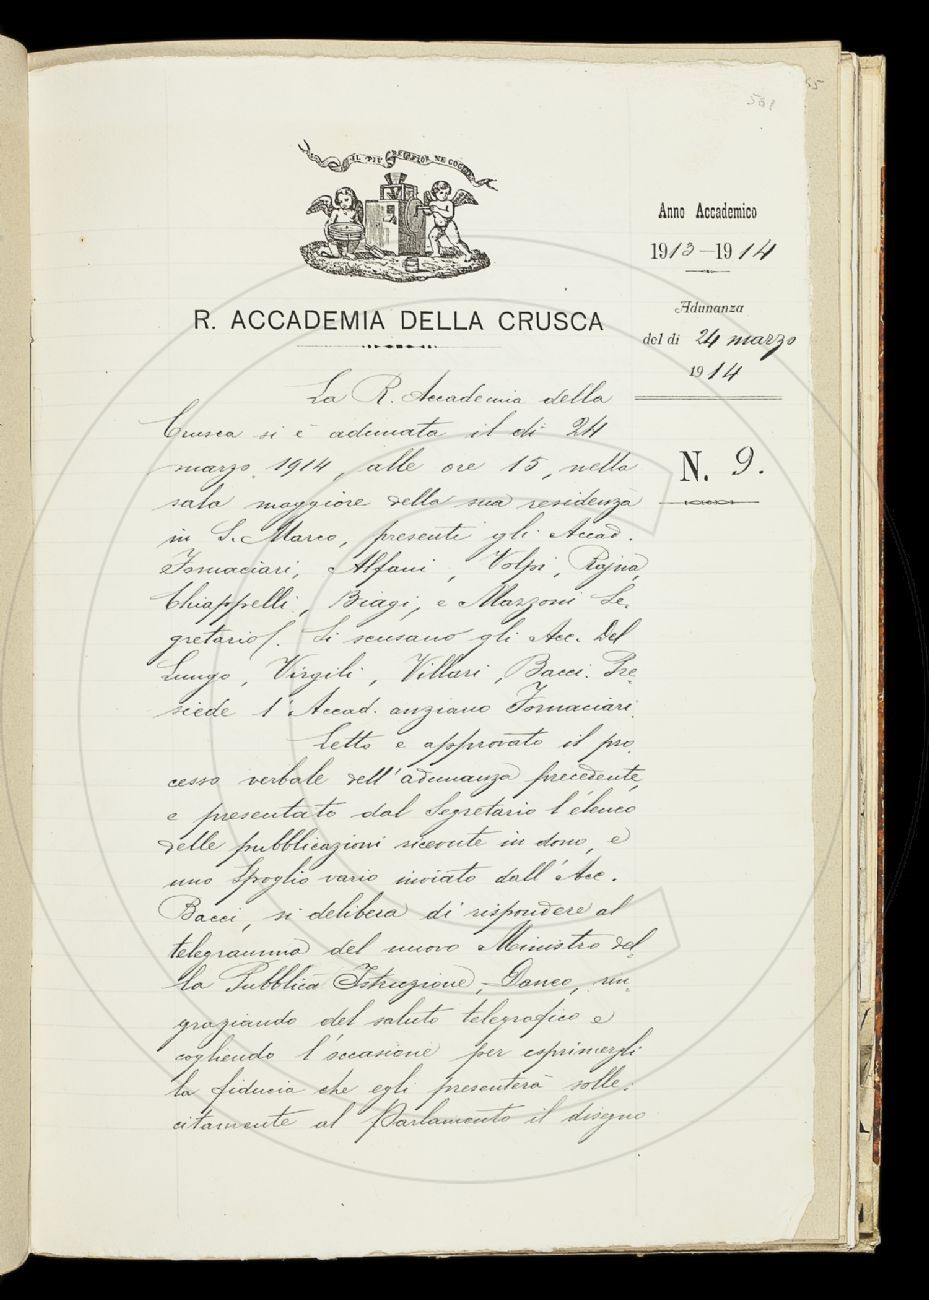 501
IL PIÙ BEL FIOR NE COGLIE
R. ACCADEMIA DELLA CRUSCA
Anno Accademico
1913-1914
Adunanza
del dì 24 marzo
1914
N. 9.
La R. Accademia della
Crusca si è adunata il dì 24
marzo 1914, alle ore 15, nella
sala maggiore della sua residenza
in S. Marco, presenti gli Accad.
Fornaciari, Alfani, Volpi, Rajna,
Chiappelli, Biagi, e Mazzoni Se-
gretario. Si scusano gli Acc. Del
Lungo, Virgili, Villari, Bacci. Pre-
siede l'Accad. anziano Fornaciari.
Letto e approvato il pro
cesso verbale dell'adunanza precedente,
e presentato dal Segretario l'elenco
delle pubblicazioni ricevute in dono, e
uno Spoglio vario inviato dall'Acc.
Bacci, si delibera di rispondere al
telegramma del nuovo Ministro del-
la Pubblica Istruzione, Daneo, rin-
graziando del saluto telegrafico e
cogliendo l'occasione per esprimergli
la fiducia che egli presenterà solle-
citamente al Parlamento il disegno